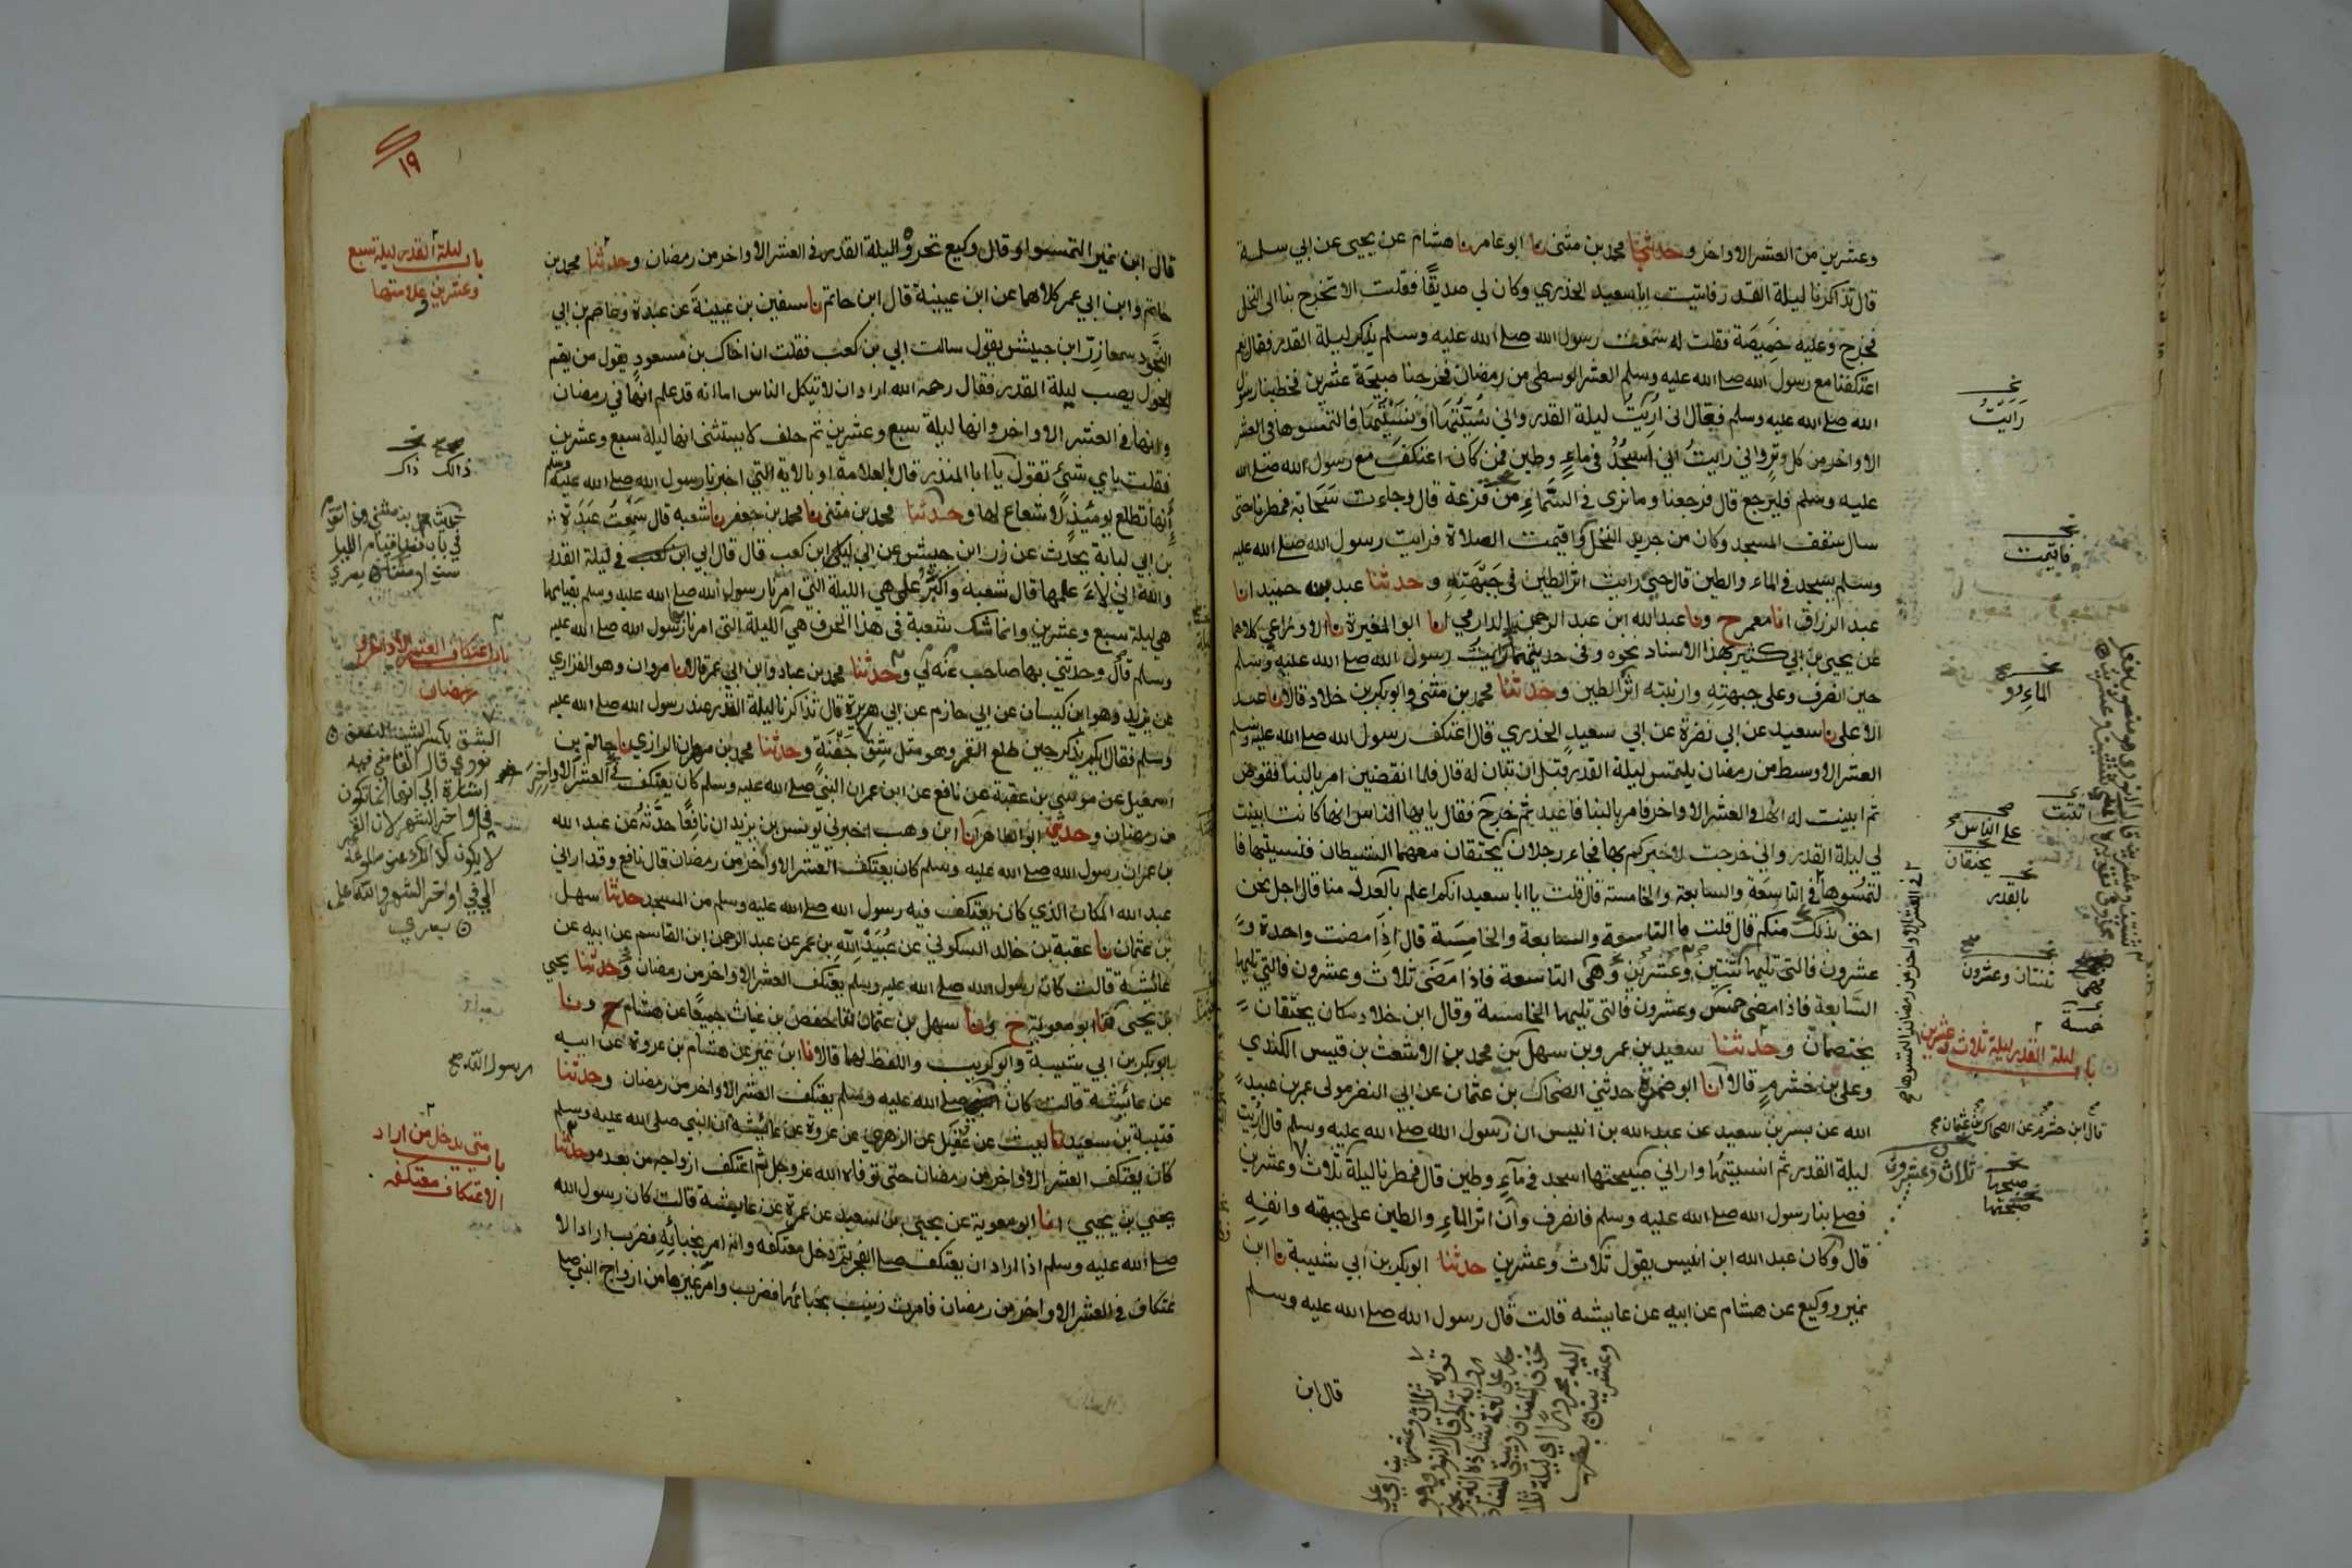 وعشرين من العشر الاواخر وحدثنا محمد بن مثنى نا ابو عامر نا هشام عن يحيى عن ابي سلمة
قال تذاكرنا ليلة القدر فاتيت ابا سعيد الخدري وكان لي صديقًا فقلت الا تخرج بنا الى النخل
فخرج وعليه خميصة فقلت له سمعت رسول الله صلى الله عليه وسلم يذكر ليلة القدر فقال نعم
اعتكفنا مع رسول الله صلى الله عليه وسلم العشر الوسطى من رمضان فخرجنا صبيحة عشرين فخطبنا رسول
الله صلى الله عليه وسلم فقال اني اريت ليلة القدر واني نسيتها او نسيتها فالتمسوها في العشر
الاواخر من كل وتر واني رايت اني اسجد في ماء وطين فمن كان اعتكف مع رسول الله صلى الله
عليه وسلم فليرجع قال فرجعنا وما نرى في السماء من قزعة قال وجاءت سحابة فمطرنا حتى
سال سقف المسجد وكان من جريد النخل واقيمت الصلاة فرايت رسول الله صلى الله عليه
وسلم يسجد في الماء والطين قال حتى رايت اثر الطين في جبهته وحدثنا عبد بن حميد انا
عبد الرزاق انا معمر ح ونا عبد الله ابن عبد الرحمن الدارمي انا ابو المغيرة نا الاوزاعي كلاهما
عن يحيى بن ابي كثير بهذا الاسناد نحوه وفي حديثهما رايت رسول الله صلى الله عليه وسلم
حين انصرف وعلى جبهته وارنبته اثر الطين وحدثنا محمد بن مثنى وابو بكر بن خلاد قالا نا عبد
الاعلى نا سعيد عن ابي نضرة عن ابي سعيد الخدري قال اعتكف رسول الله صلى الله عليه وسلم
العشر الاوسط من رمضان يلتمس ليلة القدر قبل ان تبان له قال فلما انقضين امر بالبناء فقوض
ثم ابينت له انها في العشر الاواخر فامر بالبناء فاعيد ثم خرج فقال يا ايها الناس انها كانت ابينت
لي ليلة القدر واني خرجت لاخبركم بها فجاء رجلان يحتقان معهما الشيطان فنسيتها فا
لتمسوها في التاسعة والسابعة والخامسة قال قلت يا ابا سعيد انكم اعلم بالعدد منا قال اجل نحن
احق بذلك منكم قال قلت ما التاسعة والسابعة والخامسة قال اذا مضت واحدة و
عشرون فالتي تليها ثنتين وعشرين وهي التاسعة فاذا مضى ثلاث وعشرون فالتي تليها
السابعة فاذا مضى خمس وعشرون فالتي تليها الخامسة وقال ابن خلاد مكان يحتقان
يختصمان وحدثنا سعيد بن عمرو بن سهل بن محمد بن الاشعث بن قيس الكندي
وعلي بن خشرم قالا انا ابو ضمرة حدثني الضحاك بن عثمان عن ابي النضر مولى عمر بن عبيد
الله عن بسر بن سعيد عن عبد الله بن انيس ان رسول الله صلى الله عليه وسلم قال اريت
ليلة القدر ثم انسيتها واراني صبيحتها اسجد في ماء وطين قال فمطرنا ليلة ثلاث وعشرين
فصلى بنا رسول الله صلى الله عليه وسلم فانصرف وان اثر الماء والطين على جبهته وانفه
قال وكان عبد الله ابن انيس يقول ثلاث وعشرين حدثنا ابو بكر بن ابي شيبة نا ابن
نمير ووكيع عن هشام عن ابيه عن عايشه قالت قال رسول الله صلى الله عليه وسلم
قال ابن
رايت
فاقيمت
الماء و
تثبت
على الناس
يحتقان
بالقدر
ثنتان وعشرون
خمسة
باب ليلة القدر ليلة ثلاث وعشرين
قال ابن خشرم عن الضحاك بن عثمان
ثلاث وعشرون
صبحها
في العشر الاواخر من رمضان التمسوها
١٩
قال ابن نمير التمسوا وقال وكيع تحروا ليلة القدر في العشر الاواخر من رمضان وحدثنا محمد بن
حاتم وابن ابي عمر كلاهما عن ابن عيينة قال ابن حاتم نا سفين بن عيينة عن عبدة وعاصم بن ابي
النجود سمعا زر ابن حبيش يقول سالت ابي بن كعب فقلت ان اخاك بن مسعود يقول من يقم
الحول يصب ليلة القدر فقال رحمه الله اراد ان لا تتكل الناس اما انه قد علم انها في رمضان
وانها في العشر الاواخر وانها ليلة سبع وعشرين ثم حلف لا يستثنى انها ليلة سبع وعشرين
فقلت باي شئ تقول يا ابا المنذر قال بالعلامة او بالاية التي اخبرنا رسول الله صلى الله عليه وسلم
انها تطلع يومئذ لا شعاع لها وحدثنا محمد بن مثنى نا محمد بن جعفر نا شعبه قال سمعت عبدة
بن ابي لبابة يحدث عن زر ابن حبيش عن ابي ابن كعب قال قال ابي ابن كعب في ليلة القدر
والله اني لا علمها قال شعبه واكبر علمي هي الليلة التي امرنا رسول الله صلى الله عليه وسلم بقيامها
هي ليلة سبع وعشرين وانما شك شعبة في هذا الحرف هي الليلة التي امرنا رسول الله صلى الله عليه
وسلم قال وحدثني بها صاحب عنه لي وحدثنا محمد بن عباد وابن ابي عمر قالا نا مروان وهو الفزاري
عن يزيد وهو ابن كيسان عن ابي حازم عن ابي هريرة قال تذاكرنا ليلة القدر عند رسول الله صلى الله عليه
وسلم فقال ايكم يذكر حين طلع القمر وهو مثل شق جفنة وحدثنا محمد بن مهران الرازي نا حاتم بن
اسمعيل عن موسى بن عقبة عن نافع عن ابن عمر ان النبي صلى الله عليه وسلم كان يعتكف في العشر الاواخر
من رمضان وحدثني ابو الطاهر انا ابن وهب اخبرني يونس بن يزيد ان نافعًا حدثه عن عبد الله
بن عمر ان رسول الله صلى الله عليه وسلم كان يعتكف العشر الاواخر من رمضان قال نافع وقد اراني
عبد الله المكان الذي كان يعتكف فيه رسول الله صلى الله عليه وسلم من المسجد حدثنا سهل
بن عثمان نا عقبة بن خالد السكوني عن عبيد الله بن عمر عن عبد الرحمن ابن القاسم عن ابيه عن
عائشة قالت كان رسول الله صلى الله عليه وسلم يعتكف العشر الاواخر من رمضان وحدثنا يحيى
بن يحيى انا ابو معوية ح ونا سهل بن عثمان انا حفص بن غياث جميعًا عن هشام ح ونا
ابو بكر بن ابي شيبة وابو كريب واللفظ لهما قالا نا ابن نمير عن هشام بن عروة عن ابيه
عن عائشة قالت كان صلى الله عليه وسلم يعتكف العشر الاواخر من رمضان وحدثنا
قتيبة بن سعيد نا ليث عن عقيل عن الزهري عن عروة عن عائشة ان النبي صلى الله عليه وسلم
كان يعتكف العشر الاواخر من رمضان حتى توفاه الله عز وجل ثم اعتكف ازواجه من بعده وحدثنا
يحيى بن يحيى انا ابو معوية عن يحيى بن سعيد عن عمرة عن عايشة قالت كان رسول الله
صلى الله عليه وسلم اذا اراد ان يعتكف صلى الفجر ثم دخل معتكفه وانه امر بخبائه فضرب اراد الا
عتكاف في العشر الاواخر من رمضان فامرت زينب بخبائها فضرب وامر غيرها من ازواج النبي صلى
باب ليلة القدر ليلة سبع
وعشرين وعلامتها
ذالك ذاك
باب اعتكاف العشر الاواخر من
رمضان
الشق بكسر الشين النصف
نووي قال القاضي فيه
اشارة الى انها انما تكون
في اواخر الشهر لان القمر
لا يكون كذلك عند طلوعه
الا في اواخر الشهر والله اعلم
رسول الله صح
باب متى يدخل من اراد
الاعتكاف معتكفه